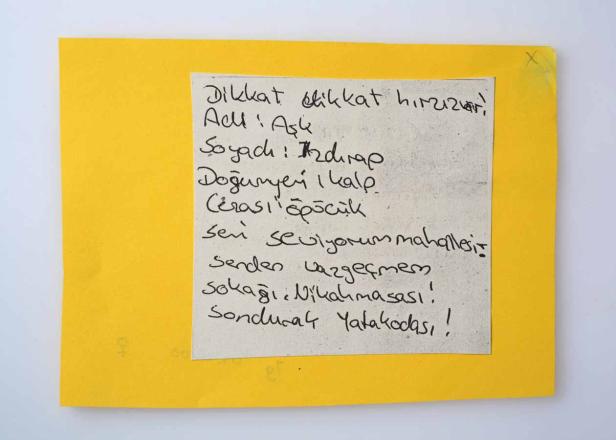 Dikkat dikkat hırsızvar!
Adı: Aşk
Soyadı: Izdırap
Doğumyeri: kalp
Cezası: öpücük
seni seviyorum mahallesi:
senden vazgeçmem
sokağı. Nikahmasası!
sondurak Yatakodası!
X